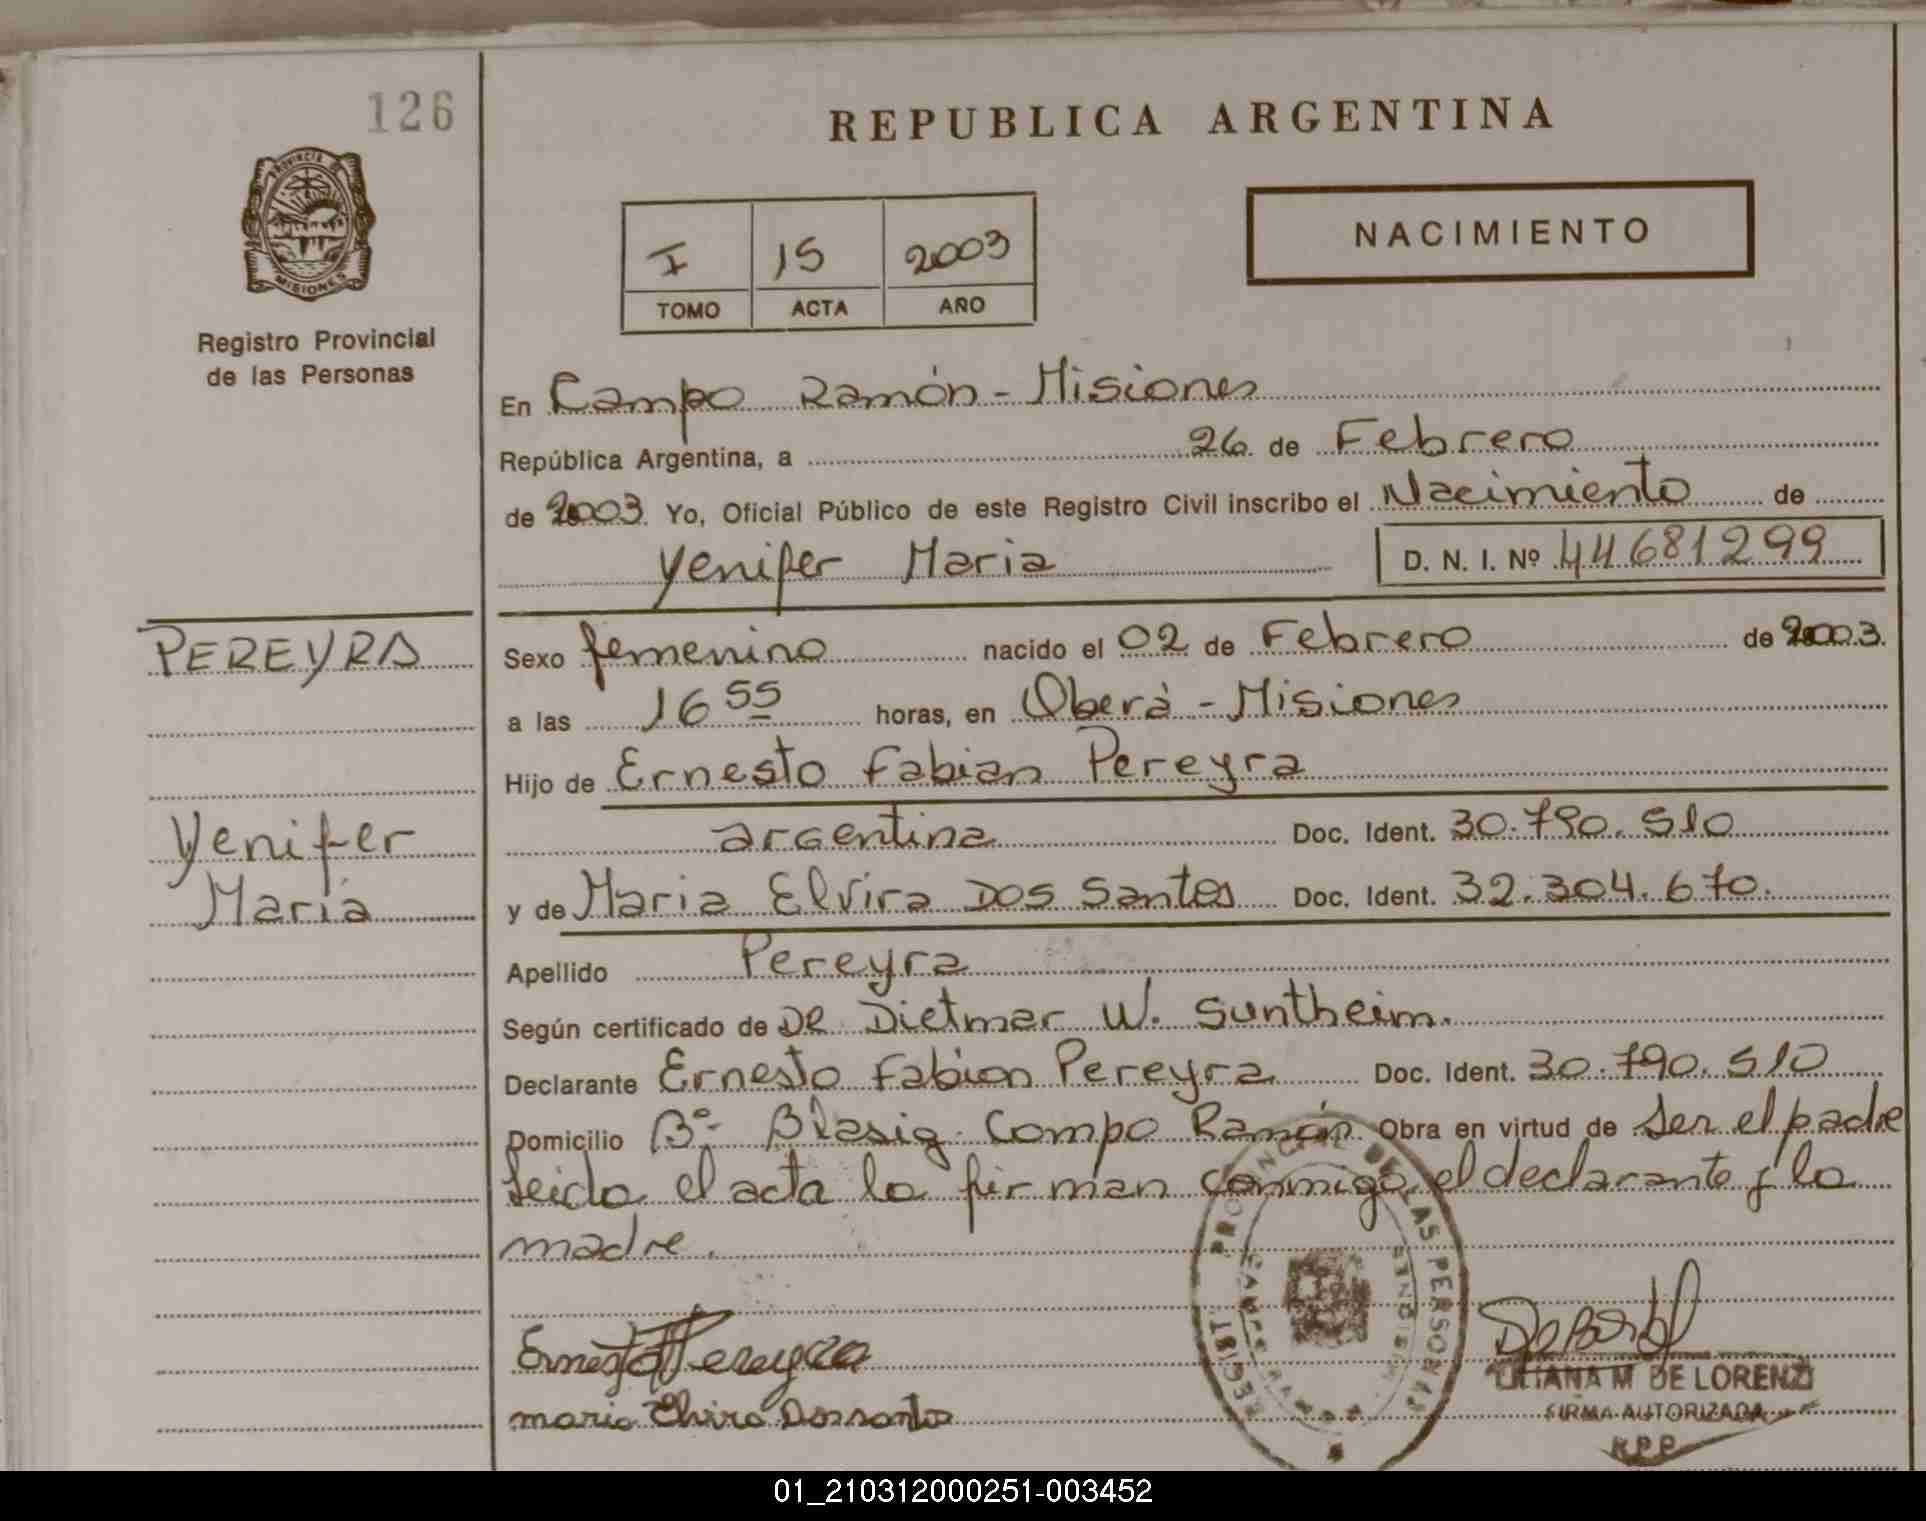 126
REPUBLICA ARGENTINA
PROVINCIA DE
MISIONES
I 15 2003
TOMO ACTA AÑO
NACIMIENTO
Registro Provincial
de las Personas
En Campo Ramón - Misiones
República Argentina, a 26 de Febrero
de 2003 Yo, Oficial Público de este Registro Civil inscribo el Nacimiento de
Yenifer Maria D. N. I. Nº 44681299
PEREYRA
Sexo femenino nacido el 02 de Febrero de 2003.
a las 16 55 horas, en Oberá - Misiones
Hijo de Ernesto Fabian Pereyra
Yenifer
Maria
argentina Doc. Ident. 30.790.510
y de Maria Elvira Dos Santos Doc. Ident. 32.304.670.
Apellido Pereyra
Según certificado de DR Dietmar W. Suntheim.
Declarante Ernesto Fabian Pereyra Doc. Ident. 30.790.510
Domicilio Bº Blasig - Campo Ramón Obra en virtud de ser el padre
leida el acta la firman conmigo el declarante y la
madre.
PROVINCIAL DE LAS PERSONAS
MISIONES
Ernesto F Pereyra
maria Elvira Dossantos
LILIANA M DE LORENZI
FIRMA AUTORIZADA
R.P.P.
01_210312000251-003452